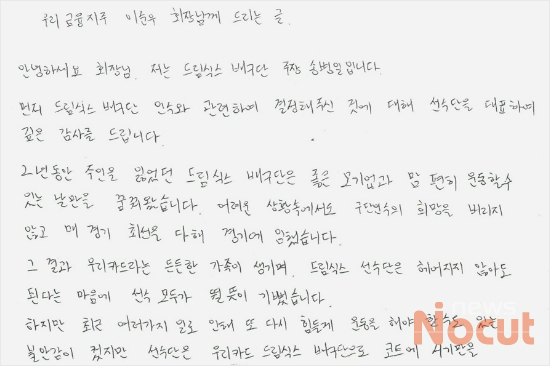 우리금융지주 이순우 회장님께 드리는 글.
안녕하세요 회장님. 저는 드림식스 배구단 주장 송병일입니다.
먼저 드림식스 배구단 인수와 관련하여 결정해주신 것에 대해 선수단을 대표하여
깊은 감사를 드립니다.
2년동안 주인을 잃었던 드림식스 배구단은 좋은 모기업과 맘 편히 운동할수
있는 날만을 꿈꿔왔습니다. 어려운 상황속에서도 구단인수의 희망을 버리지
않고 매 경기 최선을 다해 경기에 임했습니다.
그 결과 우리카드라는 든든한 가족이 생기며, 드림식스 선수단은 헤어지지 않아도
된다는 마음에 선수 모두가 뛸듯이 기뻤습니다.
하지만 최근 여러가지 일로 인해 또 다시 힘들게 운동을 해야 할 수도 있는
불안감이 컸지만 선수단은 우리카드 드림식스 배구단으로 코트에 서기만을
news
Nocut